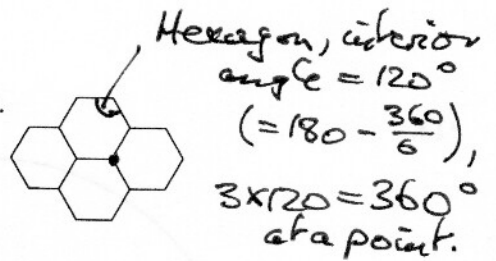 Hexagon, interior
angle = 120°
(= 180 - 360/6),
3×120 = 360°
at a point.